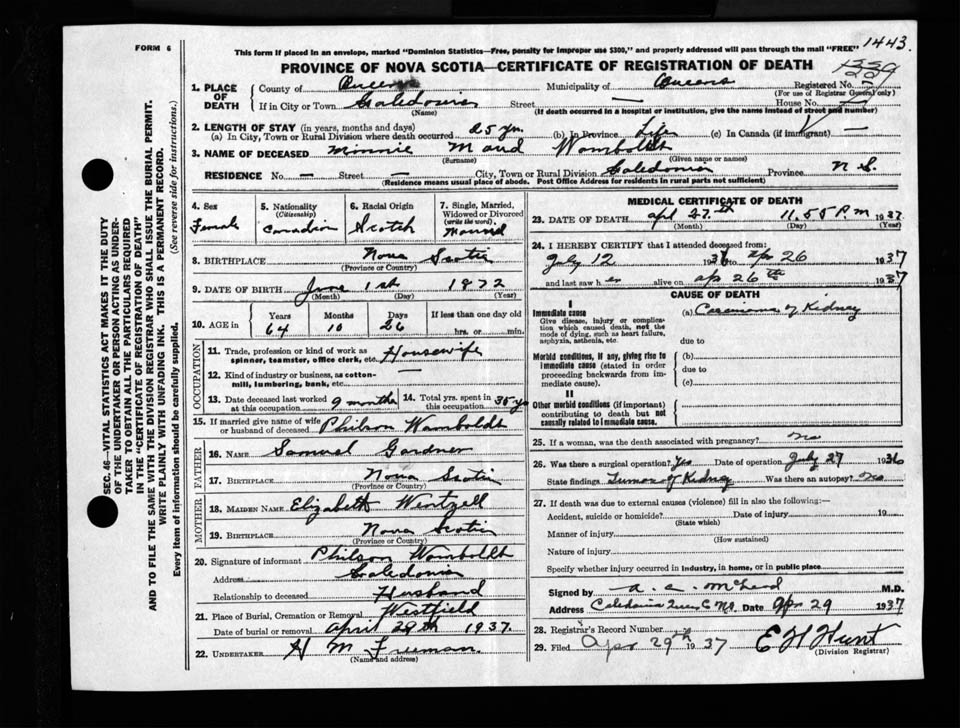 FORM 6
This form if placed in an envelope, marked "Dominion Statistics—Free, penalty for improper use $300," and properly addressed will pass through the mail "FREE"
1443.
PROVINCE OF NOVA SCOTIA—CERTIFICATE OF REGISTRATION OF DEATH
1. PLACE OF DEATH
County of Queens Municipality of Queens Registered No.
(For use of Registrar General only)
If in City or Town Caledonia Street — House No. —
(Name) (If death occurred in a hospital or institution, give the name instead of street and number)
2. LENGTH OF STAY (in years, months and days)
(a) In City, Town or Rural Division where death occurred 25 yrs (b) In Province Life (c) In Canada (if immigrant) —
3. NAME OF DECEASED Minnie Maud Wamboldt
(Surname) (Given name or names)
RESIDENCE No. — Street — City, Town or Rural Division Caledonia Province N.S.
(Residence means usual place of abode. Post Office Address for residents in rural parts not sufficient)
4. Sex Female
5. Nationality (Citizenship) Canadian
6. Racial Origin Scotch
7. Single, Married, Widowed or Divorced (write the word). Married
8. BIRTHPLACE Nova Scotia
(Province or Country)
9. DATE OF BIRTH June 1st 1872
(Month) (Day) (Year)
10. AGE in Years Months Days If less than one day old
64 10 26 hrs. or min.
OCCUPATION
11. Trade, profession or kind of work as spinner, teamster, office clerk, etc. Housewife
12. Kind of industry or business, as cotton-mill, lumbering, bank, etc. —
13. Date deceased last worked at this occupation 9 months
14. Total yrs. spent in this occupation 35 yrs
15. If married give name of wife or husband of deceased Philson Wamboldt
FATHER
16. NAME Samuel Gardner
17. BIRTHPLACE Nova Scotia
(Province or Country)
MOTHER
18. MAIDEN NAME Elizabeth Wentzell
19. BIRTHPLACE Nova Scotia
(Province or Country)
20. Signature of informant Philson Wamboldt
Address Caledonia
Relationship to deceased Husband
21. Place of Burial, Cremation or Removal Westfield
Date of burial or removal April 29th 1937.
22. UNDERTAKER H M Freeman
(Name and address)
MEDICAL CERTIFICATE OF DEATH
23. DATE OF DEATH Apl 27th 11.55 P.M 1937
(Month) (Day) (Year)
24. I HEREBY CERTIFY that I attended deceased from:
July 12 1936 to Apr 26 1937
and last saw h er alive on Ap 26th 1937
CAUSE OF DEATH
I
Immediate cause
Give disease, injury or complication which caused death, not the mode of dying, such as heart failure, asphyxia, asthenia, etc.
(a) Carcinoma of Kidney
due to
Morbid conditions, if any, giving rise to immediate cause (stated in order proceeding backwards from immediate cause).
(b)
due to
(c)
II
Other morbid conditions (if important) contributing to death but not causally related to immediate cause.
25. If a woman, was the death associated with pregnancy? no
26. Was there a surgical operation? Yes Date of operation July 27 1936
State findings Tumor of Kidney Was there an autopsy? No
27. If death was due to external causes (violence) fill in also the following:—
Accident, suicide or homicide? Date of injury 19
(State which)
Manner of injury
(How sustained)
Nature of injury
Specify whether injury occurred in industry, in home, or in public place
Signed by M.D.
Address Caledonia Queens Co NS. Date Apr 29 1937
28. Registrar's Record Number
29. Filed Apr 29th 1937 E H Hunt
(Division Registrar)
SEC. 46—VITAL STATISTICS ACT MAKES IT THE DUTY
OF THE UNDERTAKER OR PERSON ACTING AS UNDER-
TAKER TO OBTAIN ALL THE PARTICULARS REQUIRED
IN THE "CERTIFICATE OF REGISTRATION OF DEATH"
AND TO FILE THE SAME WITH THE DIVISION REGISTRAR WHO SHALL ISSUE THE BURIAL PERMIT.
WRITE PLAINLY WITH UNFADING INK. THIS IS A PERMANENT RECORD.
Every item of information should be carefully supplied. (See reverse side for instructions.)